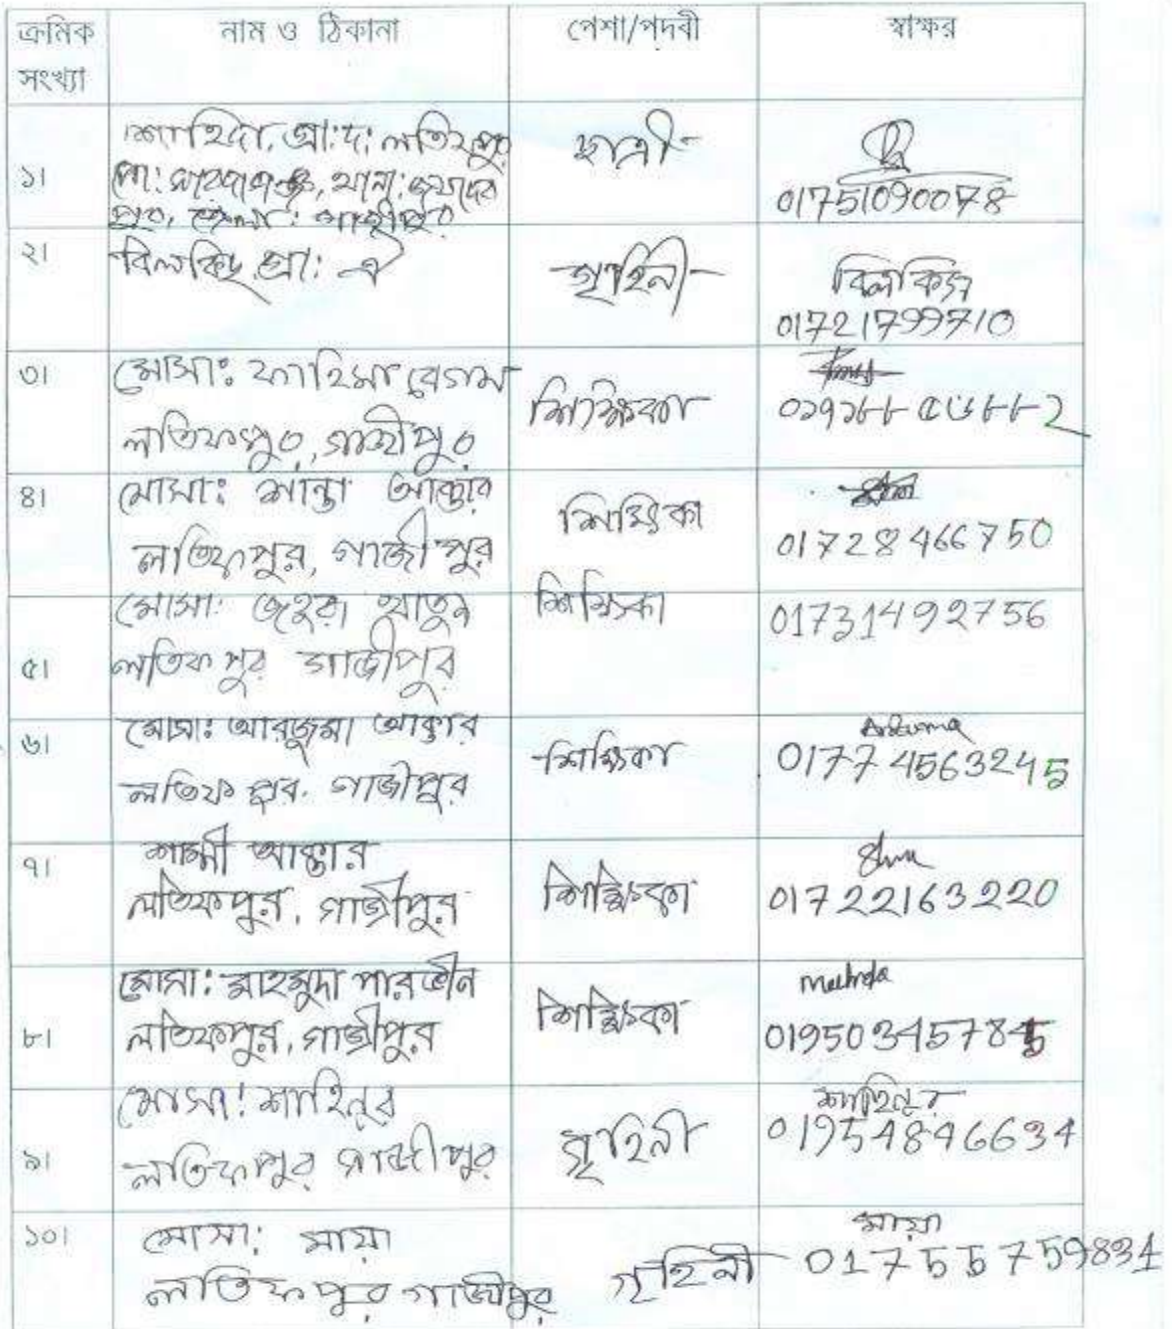 ক্রমিক সংখ্যা নাম ও ঠিকানা পেশা/পদবী স্বাক্ষর
১। শাহিদা, গ্রা:দ: লতিফপুর
পো: সারদাগঞ্জ, থানা: জয়দেব
পুর, জেলা: গাজীপুর
ছাত্রী
01751090078
২। বিলকিছ গ্রা: ঐ
গৃহিনী
বিলকিস
01721799710
৩। মোসা: ফাহিমা বেগম
লতিফপুর, গাজীপুর
শিক্ষিকা
০১৭১৮৮ ৫৬৮৮২
৪। মোসা: শান্তা আক্তার
লতিফপুর, গাজীপুর
শিক্ষিকা
01728466750
৫। মোসা: জহুরা খাতুন
লতিফপুর গাজীপুর
শিক্ষিকা
01731492756
৬। মোসা: আরজুমা আক্তার
লতিফপুর. গাজীপুর
শিক্ষিকা
01774563245
৭। শাম্মী আক্তার
লতিফপুর, গাজীপুর
শিক্ষিকা
01722163220
৮। মোসা: মাহমুদা পারভীন
লতিফপুর, গাজীপুর
শিক্ষিকা
01950345785
৯। মোসা: শাহিনুর
লতিফপুর গাজীপুর
গৃহিনী
শাহিনুর
01954846634
১০। মোসা: মায়া
লতিফপুর গাজীপুর
গৃহিনী
মায়া
01755759831